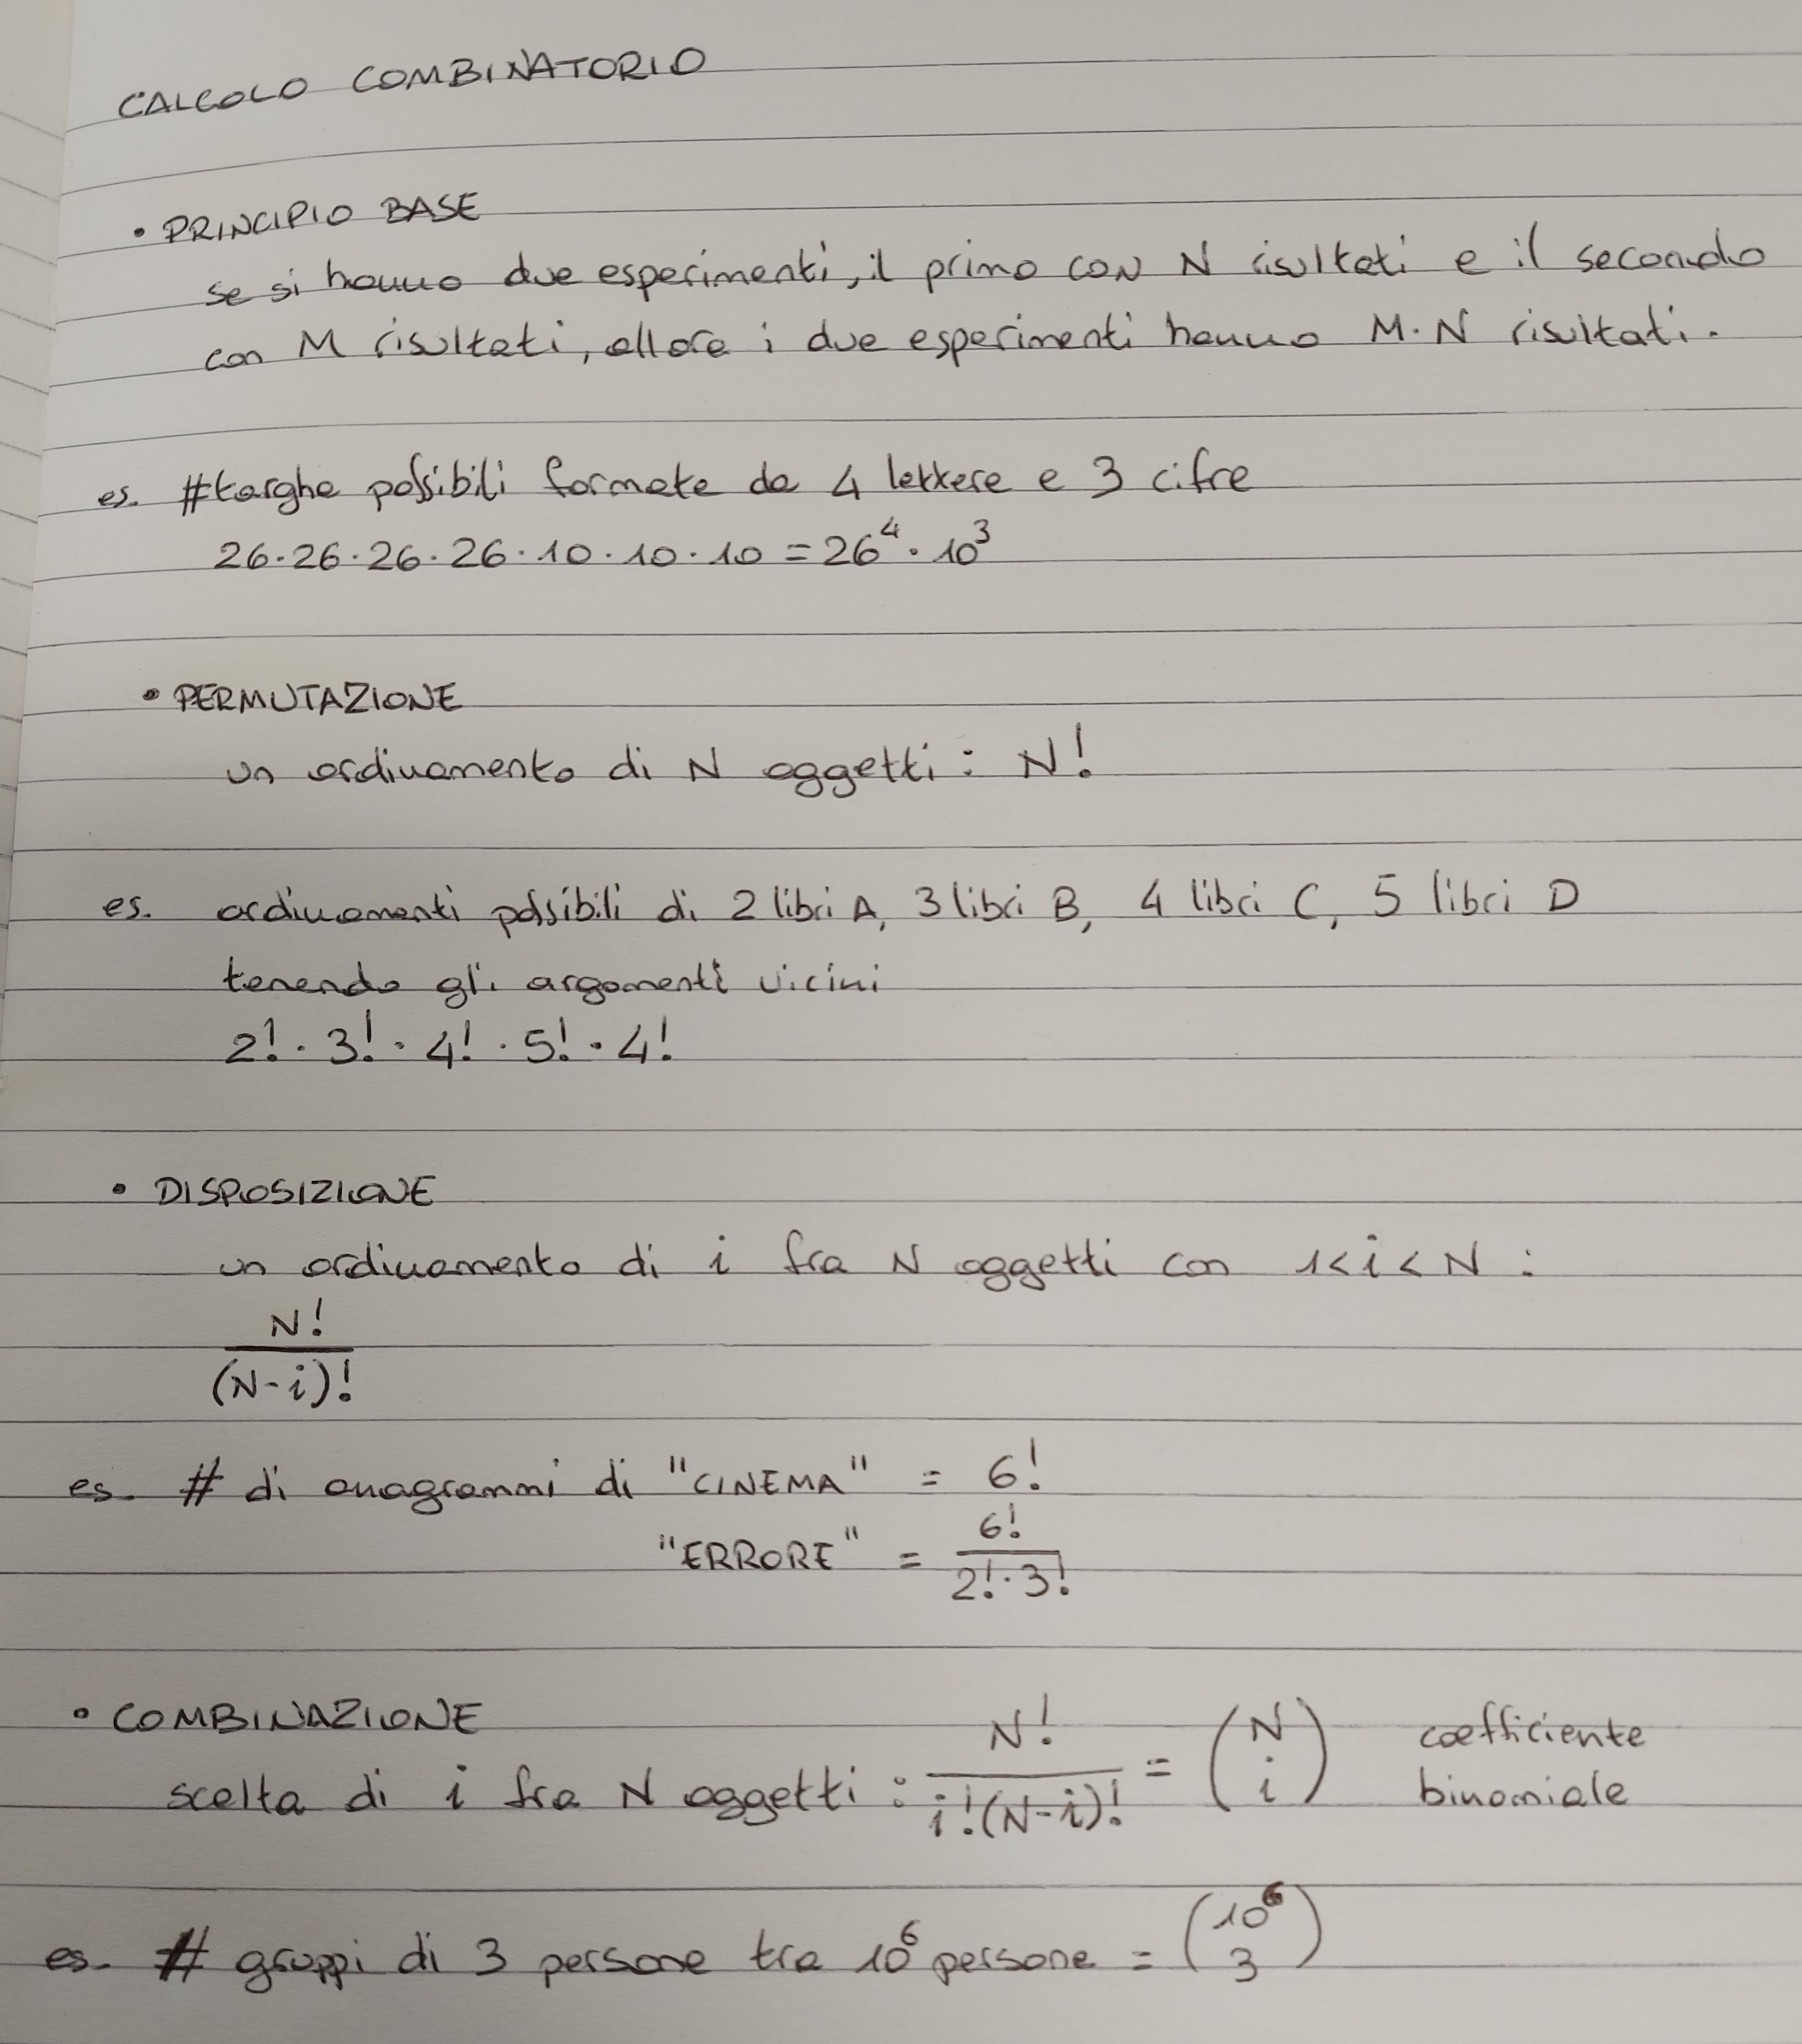 CALCOLO COMBINATORIO
• PRINCIPIO BASE
se si hanno due esperimenti, il primo con N risultati e il secondo
con M risultati, allora i due esperimenti hanno M·N risultati.
es. #targhe possibili formate da 4 lettere e 3 cifre
26·26·26·26·10·10·10 = 26⁴·10³
• PERMUTAZIONE
un ordinamento di N oggetti: N!
es. ordinamenti possibili di 2 libri A, 3 libri B, 4 libri C, 5 libri D
tenendo gli argomenti vicini
2!·3!·4!·5!·4!
• DISPOSIZIONE
un ordinamento di i fra N oggetti con 1<i<N:
N!
(N-i)!
es. # di anagrammi di "CINEMA" = 6!
"ERRORE" = 6!
2!·3!
• COMBINAZIONE
scelta di i fra N oggetti: N!/i!(N-i)! = (N i) coefficiente
binomiale
es. # gruppi di 3 persone tra 10⁶ persone = (10⁶ 3)